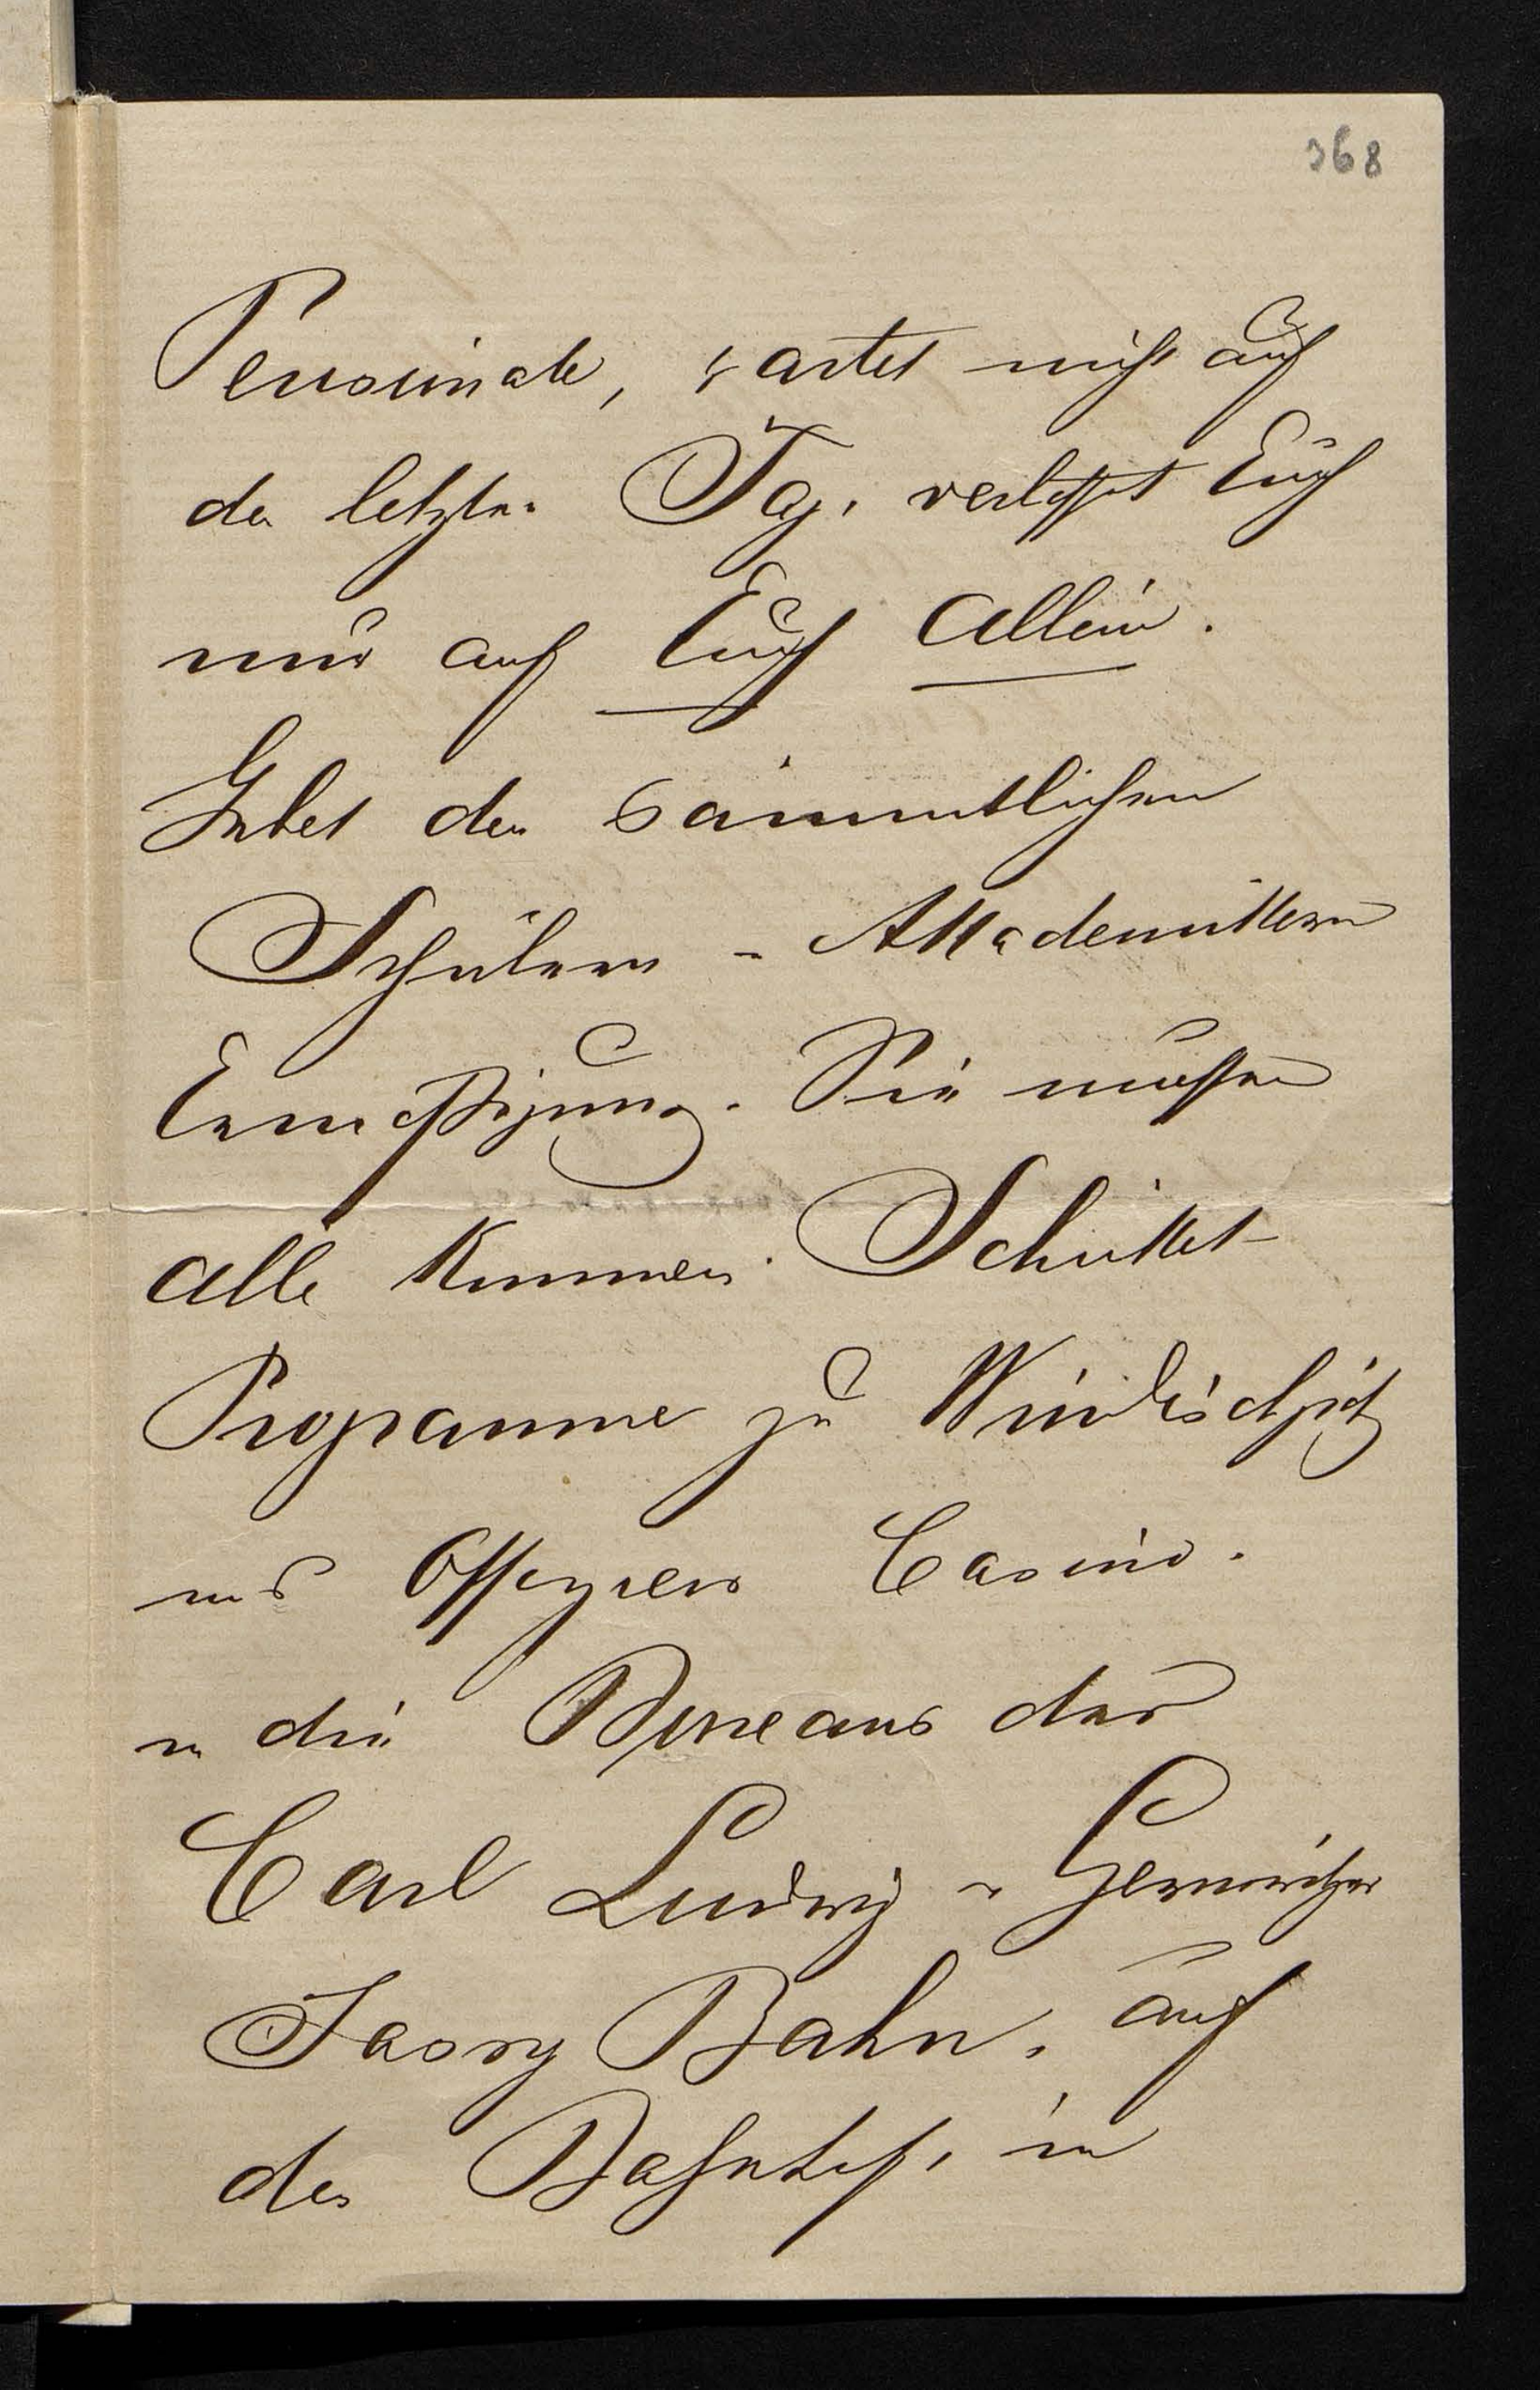 368
Pensionate, wartet nicht auf
den letzten Tag, verlasst Euch
nur auf Euch allein.
Gebet den sämmtlichen
Schülern - Akkademikern
Ermaßigung. Sie müssen
alle kommen. Schicket
Programme zu Windischgrätz
ins Offiziers Casino.
in die Bureaus der
Carl Ludwig u Czernowitzer
Jassy Bahn, auf
den Bahnhof, in